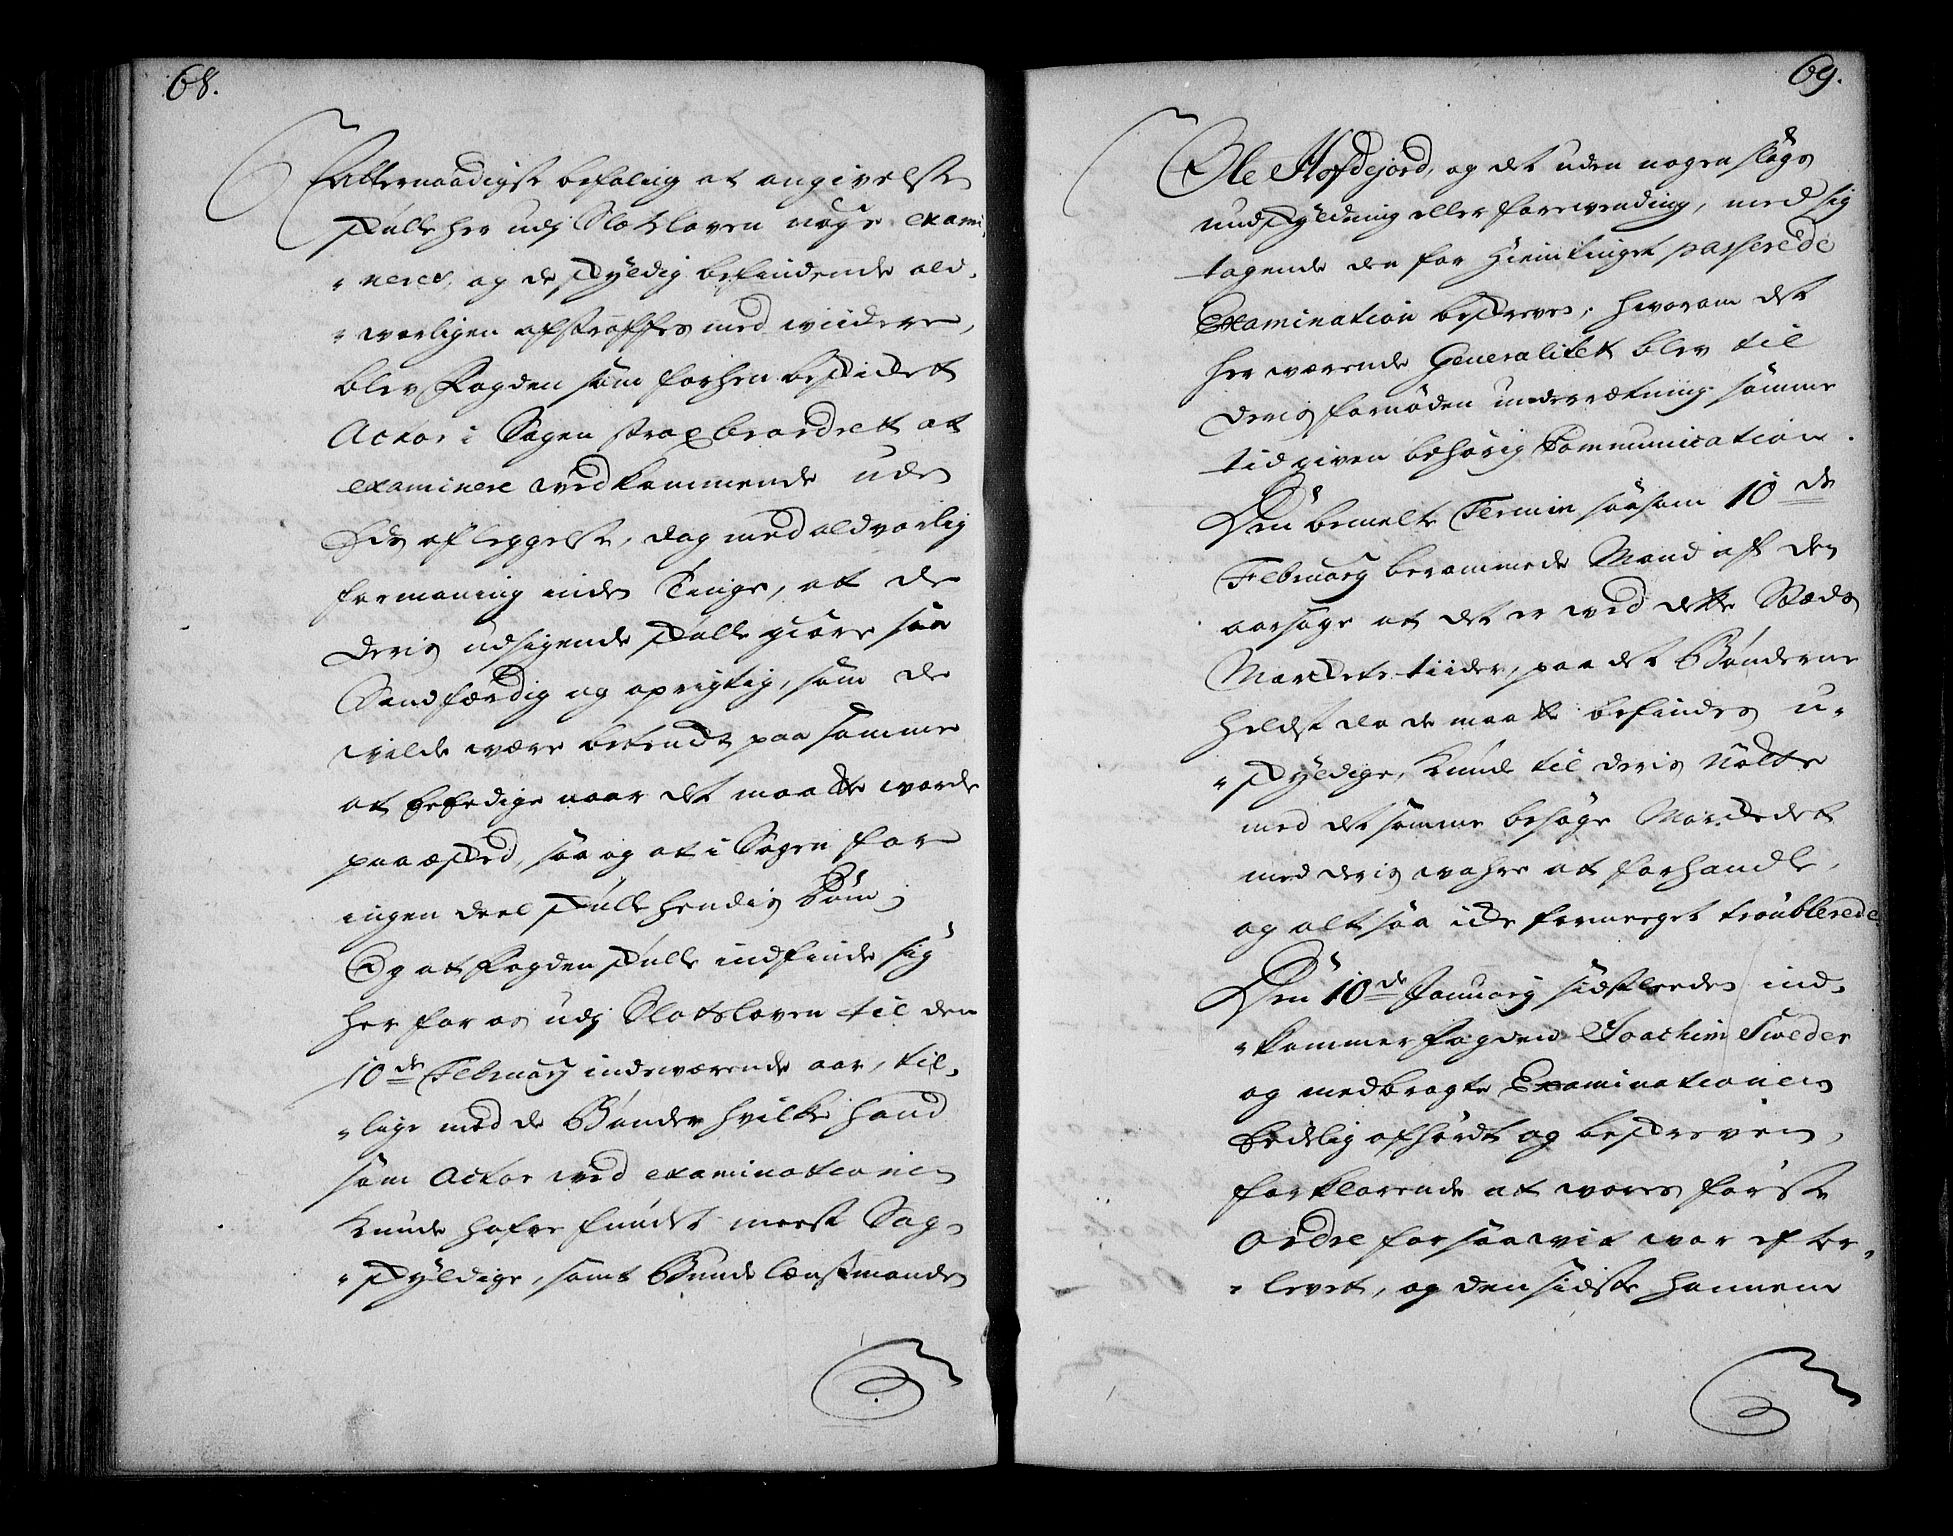 68.
Allernaadigste befaling at angivelsen
skulle her udj Slotsloven nøye exami-
neres, og de skyldig befindende ald-
vorligen afstraffes med viidere,
blev Fogden som forhen beskicket
Actor i Sagen strax beordret at
examinere vedkommende uden
Eds afleggelse, dog med aldvorlig
formaning inden Tinge, at de
deris udsigende skulle giøre saa
Sandfærdig og oprigtig, som de
vilde være bekendt paa samme
at beEedige naar det maatte vorde
paaæsked, saa og at i Sagen for
ingen deel skulle hendis Dom;
Og at Fogden skulle indfinde sig
her for os udj Slotsloven til den
10de February indeværende aar, til-
lige med de Bønder hvilke hand
som Actor ved examinationen
kunde hafve fundet meest Sag-
skyldige, samt Bundelænsmanden
69.
Ole Hofdejord, og det uden nogen slags
undskyldning eller forevending, med sig
tagende den for Hiemtinget passerede
Examination beskreven; hvorom det
her værende Generalitet blev til
deris fornøden underrætning samme
tid given behørig Communication.
Den bemelte Termin saasom 10de
February berammede Mand af den
aarsage at det er ved dette Stæds
Marckets tiider, paa det Bønderne
heldst da de maatte befindes u-
skyldige, kunde til deris Nøtte
med det samme besøge Marckedet
med deris vahre at forhandle,
og alt saa icke formeeget troublerede
Den 10de January sidstleeden ind-
kommer fogden Joachim Sweder
og medbragte Examinationen
Eedelig afhørdt og beskreven,
forklarende at vores første
Ordre forsaavit var efter-
levet, og den sidste hannem